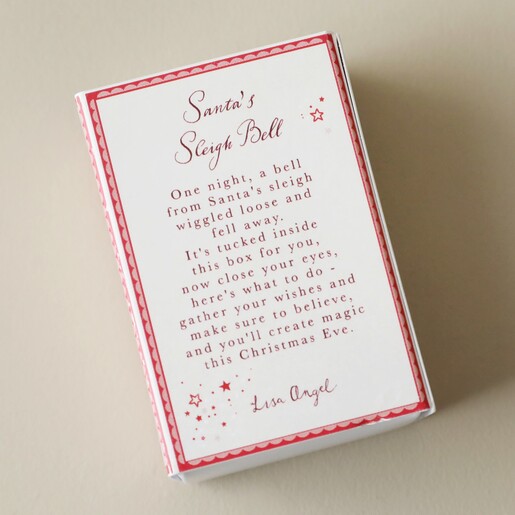 Santa's
Sleigh Bell
One night, a bell
from Santa's sleigh
wiggled loose and
fell away.
It's tucked inside
this box for you,
now close your eyes,
here's what to do -
gather your wishes and
make sure to believe,
and you'll create magic
this Christmas Eve.
Lisa Angel